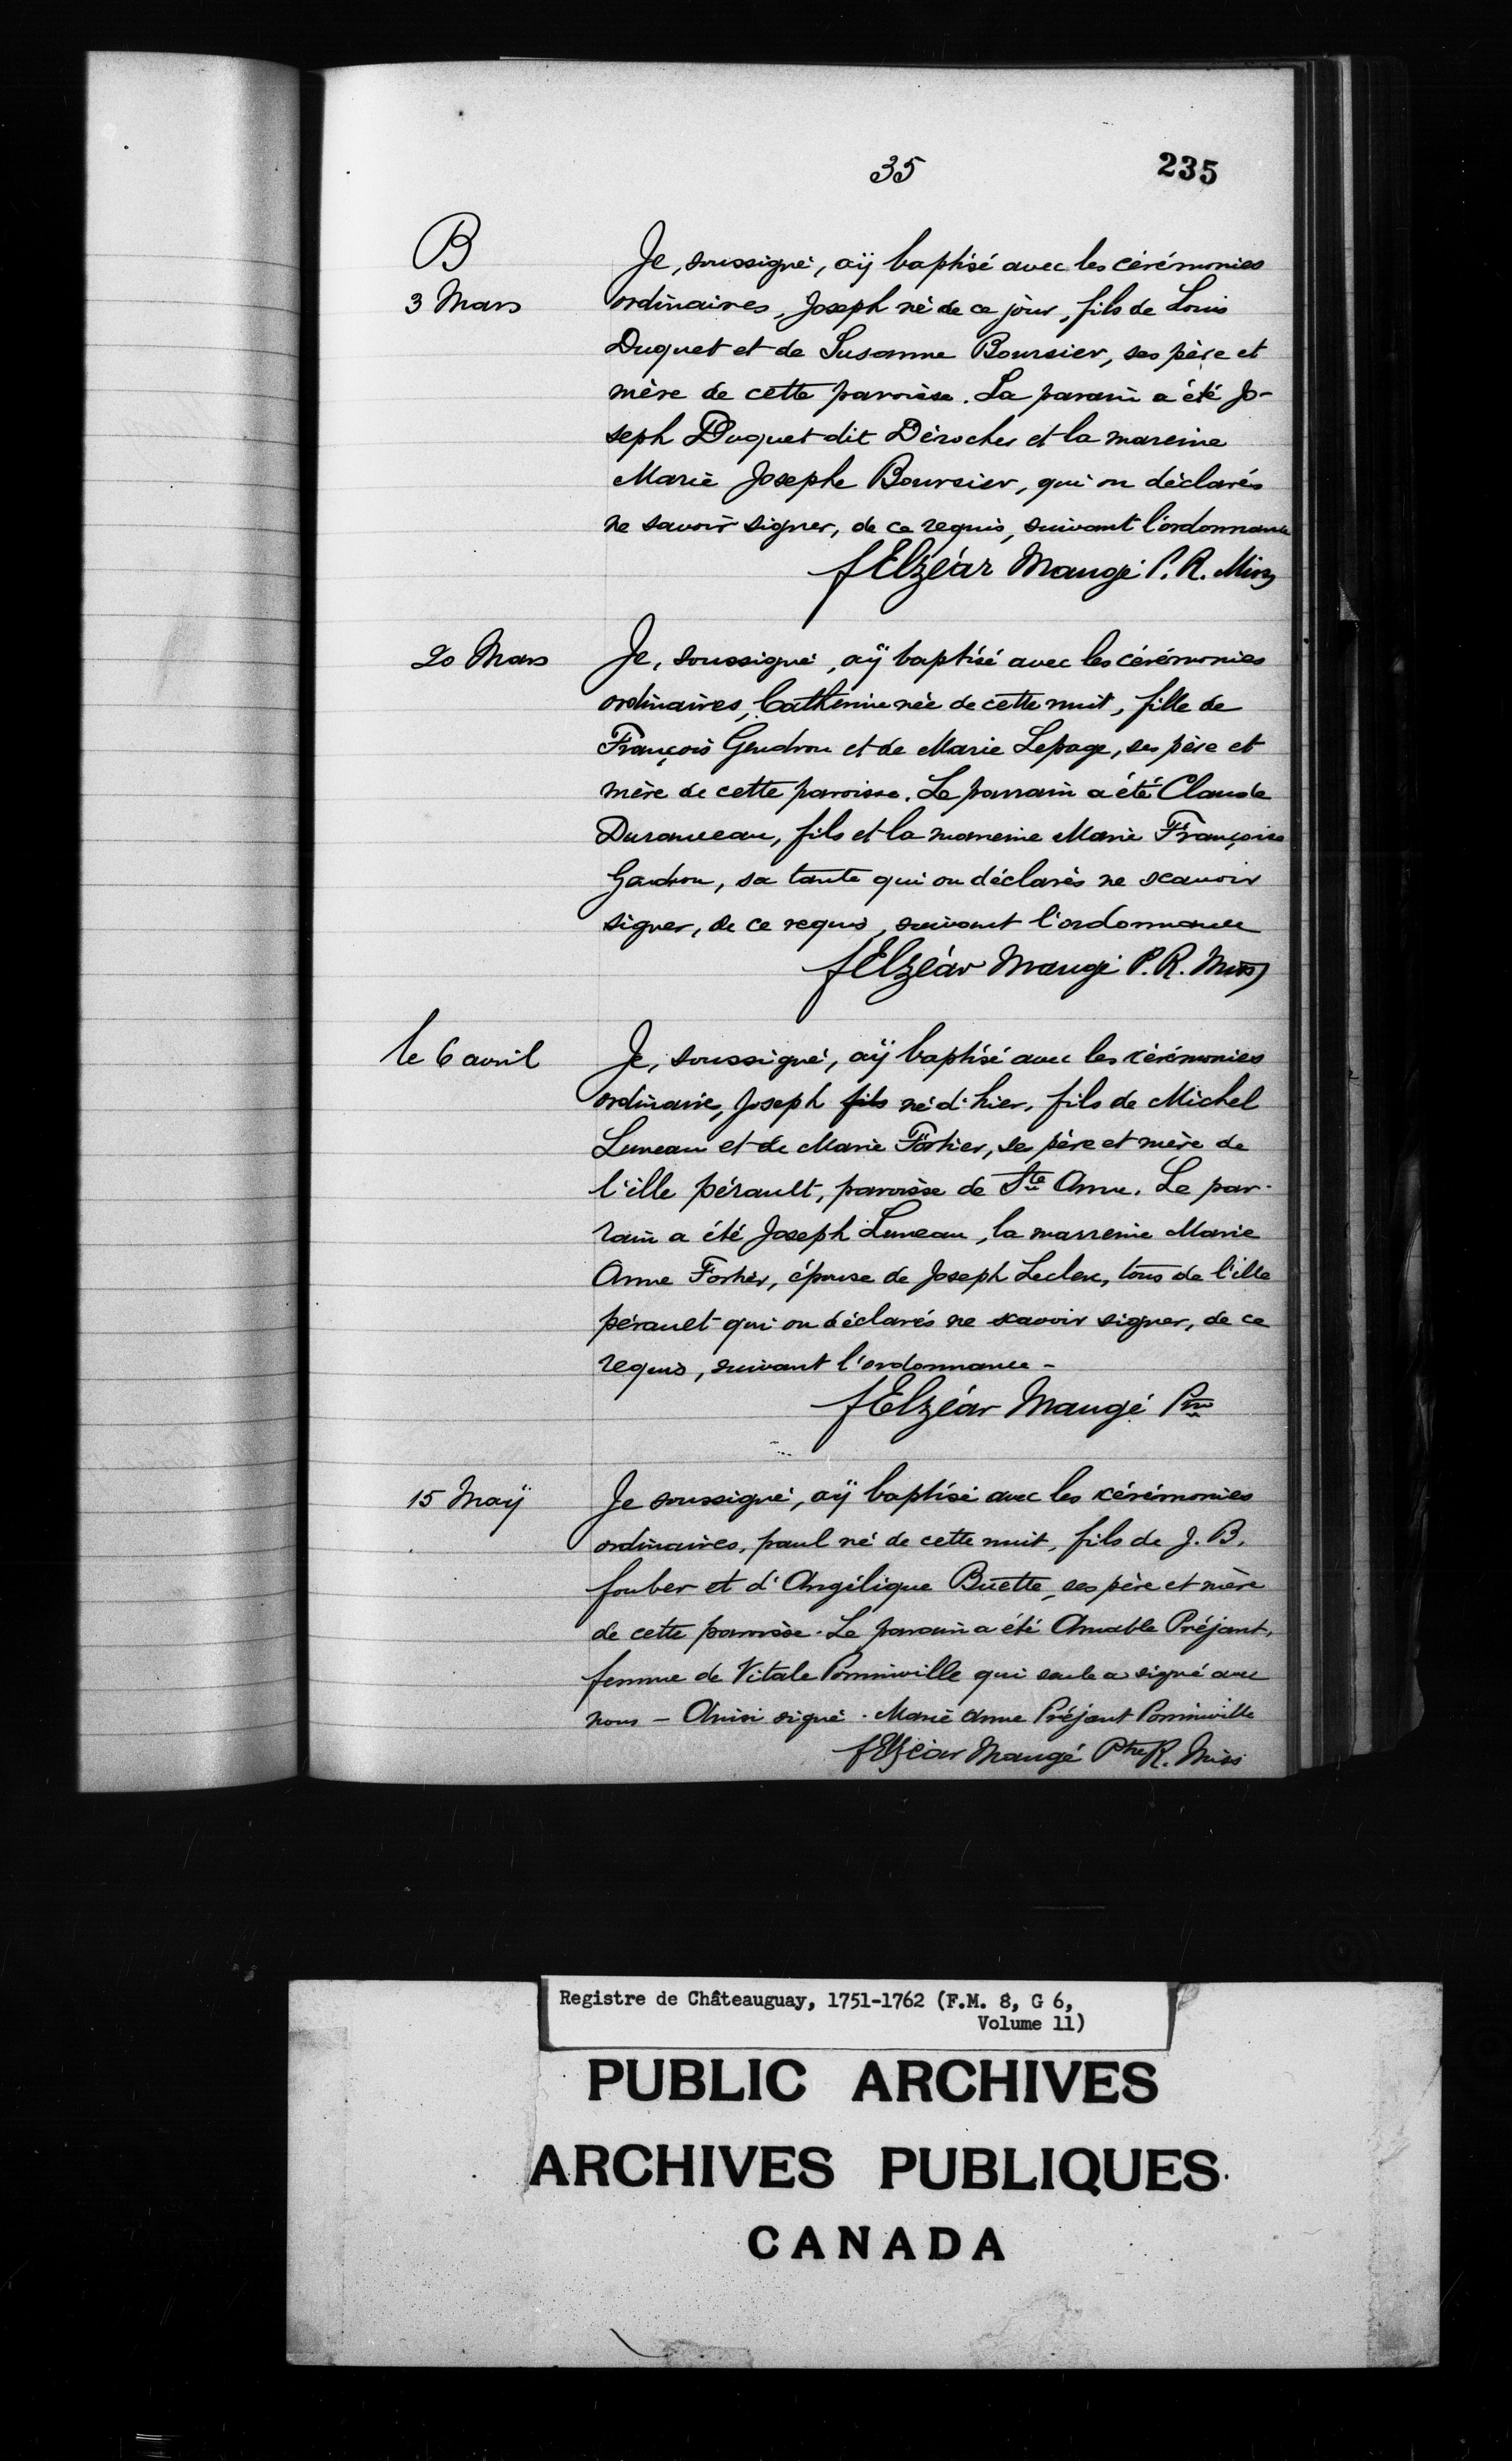 35 235
B
Je, soussigné, aÿ baptisé avec les cérémonies
3 Mars ordinaires, Joseph né de ce jour, fils de Louis
Duquet et de Susanne Boursier, ses père et
mère de cette paroisse. La parain a été Jo-
seph Duquet dit Déroches et la mareine
Marie Josephe Boursier, qui on déclarés
ne savoir signer, de ce requis, suivant l'ordonnance
f Elzéar Maugé P. R. Miss
20 Mars Je, soussigné, aÿ baptisé avec les cérémonies
ordinaires, Catherine née de cette nuit, fille de
François Gendron et de Marie Lepage, ses père et
mère de cette paroisse. Le parrain a été Claude
Duranceau, fils et la mareine Marie Françoise
Gendron, sa tante qui on déclarés ne scavoir
signer, de ce requis, suivant l'ordonnance
f Elzéar Maugé P. R. Miss
le 6 avril Je, soussigné, aÿ baptisé avec les cérémonies
ordinaire, Joseph fils né d'hier, fils de Michel
Luneau et de Marie Fortier, ses père et mère de
l'ille pérault, paroisse de Ste Anne. Le par-
rain a été Joseph Luneau, la marreine Marie
Anne Fortier, épouse de Joseph Leclerc, tous de l'ille
pérault qui on déclarés ne scavoir signer, de ce
requis, suivant l'ordonnance -
f Elzéar Maugé Ptre
15 Maÿ Je soussigné, aÿ baptisé avec les cérémonies
ordinaires, paul né de cette nuit, fils de J. B.
fouber et d'Angélique Buette, ses père et mère
de cette paroisse. Le parain a été Amable Préjant,
femme de Vitale Pominville qui seule a signé avec
nous - Ainsi signé. Marie Anne Préjant Pominville
f Elzéar Maugé Ptre R. Miss
Registre de Châteauguay, 1751-1762 (F.M. 8, G 6,
Volume 11)
PUBLIC ARCHIVES
ARCHIVES PUBLIQUES
CANADA